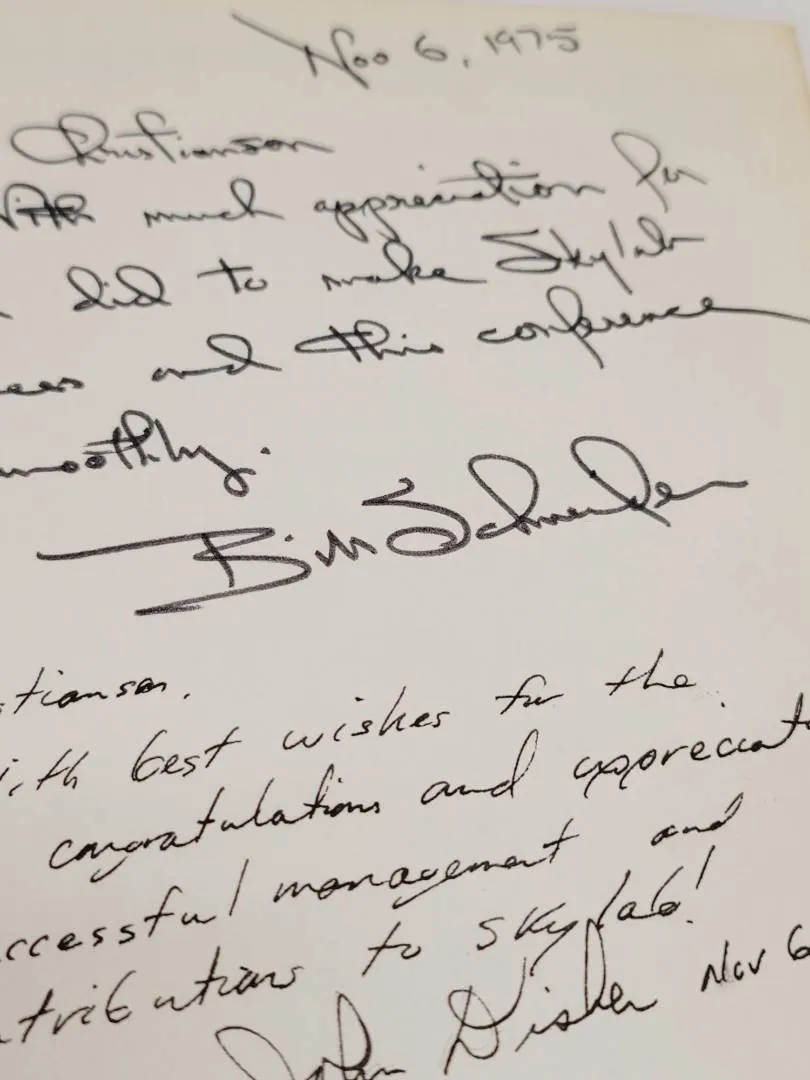 Nov 6, 1975
Christianson
With much appreciation for
did to make Skylab
and this conference
smoothly.
Bill Schneider
tianson.
with best wishes for the
congratulations and appreciat
ccessful management and
ntributions to Skylab!
John Disher Nov 6